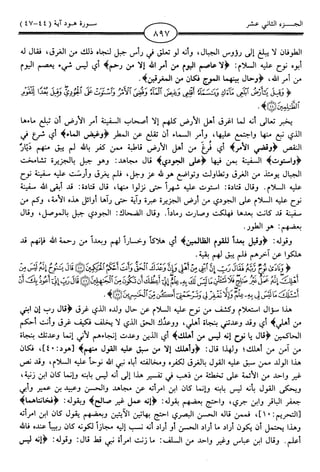 الجـــزء الثاني عشر
٨٩٧
سـورة هـود آية (٤٤-٤٧)
الطوفان لا يبلغ إلى رؤوس الجبال، وأنه لو تعلق في رأس جبل لنجاه ذلك من الغرق، فقال له
أبوه نوح عليه السلام: ﴿لا عاصم اليوم من أمر الله إلا من رحم﴾ أي ليس شيء يعصم اليوم
من أمر الله، ﴿وحال بينهما الموج فكان من المغرقين﴾.
﴿وَقِيلَ يَا أَرْضُ ابْلَعِي مَاءَكِ وَيَا سَمَاءُ أَقْلِعِي وَغِيضَ الْمَاءُ وَقُضِيَ الْأَمْرُ وَاسْتَوَتْ عَلَى الْجُودِيِّ وَقِيلَ بُعْدًا لِلْقَوْمِ
الظَّالِمِينَ﴾.
يخبر تعالى أنه لما اغرق أهل الأرض كلهم إلا أصحاب السفينة أمر الأرض أن تبلع ماءها
الذي نبع منها واجتمع عليها، وأمر السماء أن تقلع عن المطر ﴿وغيض الماء﴾ أي شرع في
النقص ﴿وقضي الأمر﴾ أي فُرغ من أهل الأرض قاطبة ممن كفر بالله لم يبق منهم ديّار
﴿واستوت﴾ السفينة بمن فيها ﴿على الجودي﴾ قال مجاهد: وهو جبل بالجزيرة تشامخت
الجبال يومئذ من الغرق وتطاولت وتواضع هو لله عز وجل، فلم يغرق وأرست عليه سفينة نوح
عليه السلام. وقال قتادة: استوت عليه شهراً حتى نزلوا منها، قال قتادة: قد أبقى الله سفينة
نوح عليه السلام على الجودي من أرض الجزيرة عبرة وآية حتى رآها أوائل هذه الأمة، وكم من
سفينة قد كانت بعدها فهلكت وصارت رماداً. وقال الضحاك: الجودي جبل بالموصل، وقال
بعضهم: هو الطور.
وقوله: ﴿وقيل بعداً للقوم الظالمين﴾ أي هلاكاً وخساراً لهم وبعداً من رحمة الله فإنهم قد
هلكوا عن آخرهم فلم يبق لهم بقية.
﴿وَنَادَى نُوحٌ رَبَّهُ فَقَالَ رَبِّ إِنَّ ابْنِي مِنْ أَهْلِي وَإِنَّ وَعْدَكَ الْحَقُّ وَأَنْتَ أَحْكَمُ الْحَاكِمِينَ قَالَ يَا نُوحُ إِنَّهُ لَيْسَ مِنْ
أَهْلِكَ إِنَّهُ عَمَلٌ غَيْرُ صَالِحٍ فَلَا تَسْأَلْنِ مَا لَيْسَ لَكَ بِهِ عِلْمٌ إِنِّي أَعِظُكَ أَنْ تَكُونَ مِنَ الْجَاهِلِينَ قَالَ رَبِّ إِنِّي أَعُوذُ بِكَ أَنْ
أَسْأَلَكَ مَا لَيْسَ لِي بِهِ عِلْمٌ وَإِلَّا تَغْفِرْ لِي وَتَرْحَمْنِي أَكُنْ مِنَ الْخَاسِرِينَ﴾.
هذا سؤال استعلام وكشف من نوح عليه السلام عن حال ولده الذي غرق ﴿قال رب إن ابني
من أهلي﴾ أي وقد وعدتني بنجاة أهلي، ووعدك الحق الذي لا يخلف فكيف غرق وأنت أحكم
الحاكمين ﴿قال يا نوح إنه ليس من أهلك﴾ أي الذين وعدت إنجاءهم لأني إنما وعدتك بنجاة
من آمن من أهلك؛ ولهذا قال: ﴿وأهلك إلا من سبق عليه القول منهم﴾ [هود: ٤٠]، فكان
هذا الولد ممن سبق عليه القول بالغرق لكفره ومخالفته أباه نبي الله نوحاً عليه السلام، وقد نص
غير واحد من الأئمة على تخطئة من ذهب في تفسير هذا إلى أنه ليس بابنه وإنما كان ابن زنية،
ويحكى القول بأنه ليس بابنه وإنما كان ابن امرأته عن مجاهد والحسن وعبيد بن عمير وأبي
جعفر الباقر وابن جرير، واحتج بعضهم بقوله: ﴿إنه عمل غير صالح﴾ وبقوله: ﴿فخانتاهما﴾
[التحريم: ١٠]، فممن قاله الحسن البصري احتج بهاتين الآيتين وبعضهم يقول كان ابن امرأته
وهذا يحتمل أن يكون أراد ما أراد الحسن أو أراد أنه نسب إليه مجازاً لكونه كان ربيباً عنده فالله
أعلم. وقال ابن عباس وغير واحد من السلف: ما زنت امرأة نبي قط قال: وقوله: ﴿إنه ليس